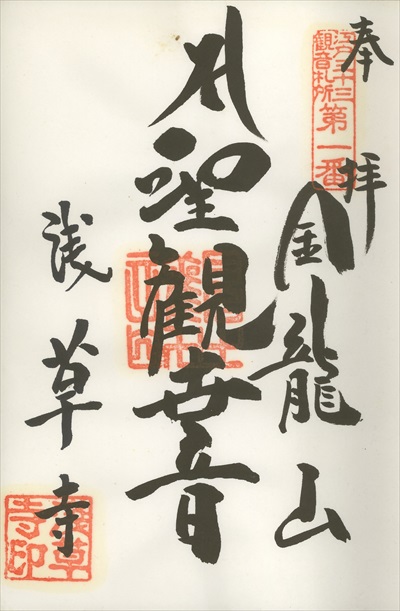 奉拝
江戸三十三
観音札所
第一番
金龍山
聖観世音
浅草寺
淺草
寺印